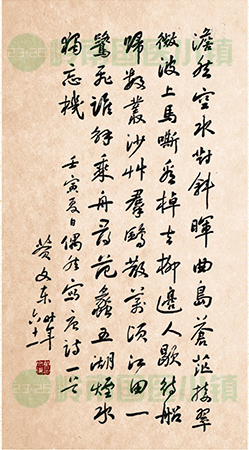 澹然空水對斜暉曲島蒼茫接翠
微波上馬嘶看棹去柳邊人歇待船
歸數叢沙艸羣鷗散萬頃江田一
鷺飛誰解乘舟尋范蠡五湖煙水
獨忘機 壬寅夏日偶然寫唐詩一首
文東时年六十二